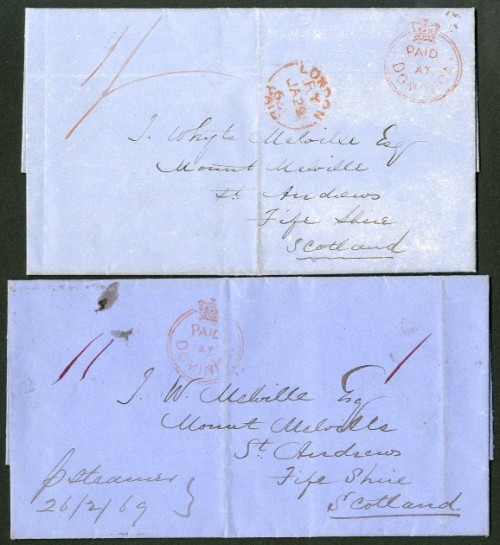 1/-
PAID
AT
DOMINICA
LONDON
FY
JA 29
69
PAID
J. Whyte Melville Esq
Mount Melville
St. Andrews
Fife Shire
Scotland
11
PAID
AT
DOMINICA
1
J. W. Melville Esq
Mount Melville
St. Andrews
Fife Shire
Scotland
p steamer
26/2/69